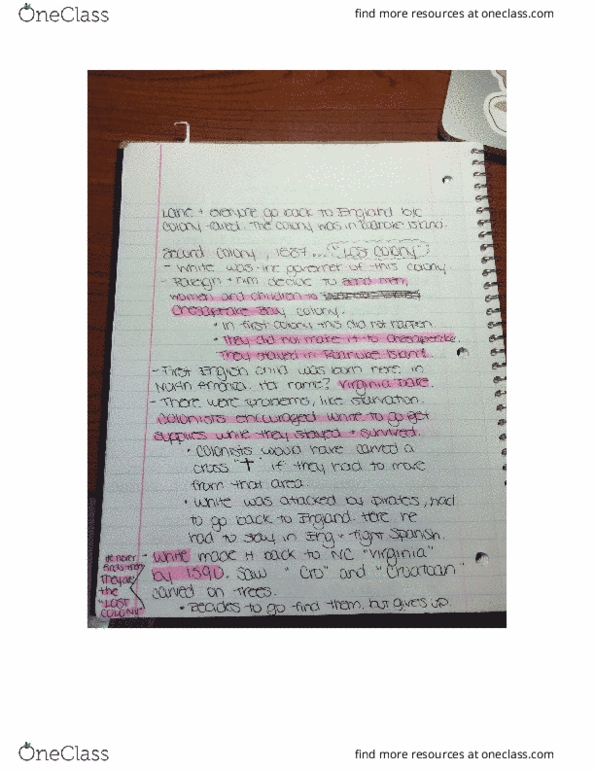 OneClass
find more resources at oneclass.com
Lane + everyone go back to England b/c
colony failed. The colony was in Roanoke Island.
Second colony, 1587... "Lost Colony"
- White was the governer of this colony
- Raleigh + him decide to send men,
women and children to
Chesapeake Bay colony.
• In first colony this did not happen
• They did not make it to Chesapeake.
They stayed in Roanoke Island.
- First English child was born here in
North America. Her name? Virginia Dare.
- There were problems, like starvation.
Colonists encouraged White to go get
supplies while they stayed + survived.
• Colonists would have carved a
cross "✝" if they had to move
from that area.
• White was attacked by pirates, had
to go back to England. Here he
had to stay in Eng + fight Spanish.
- White made it back to NC "Virginia"
by 1590. Saw "Cro" and "Croatoan"
carved on trees.
• Decides to go find them, but gives up.
He never
finds them
They're
the
"LOST
COLONY"
OneClass
find more resources at oneclass.com